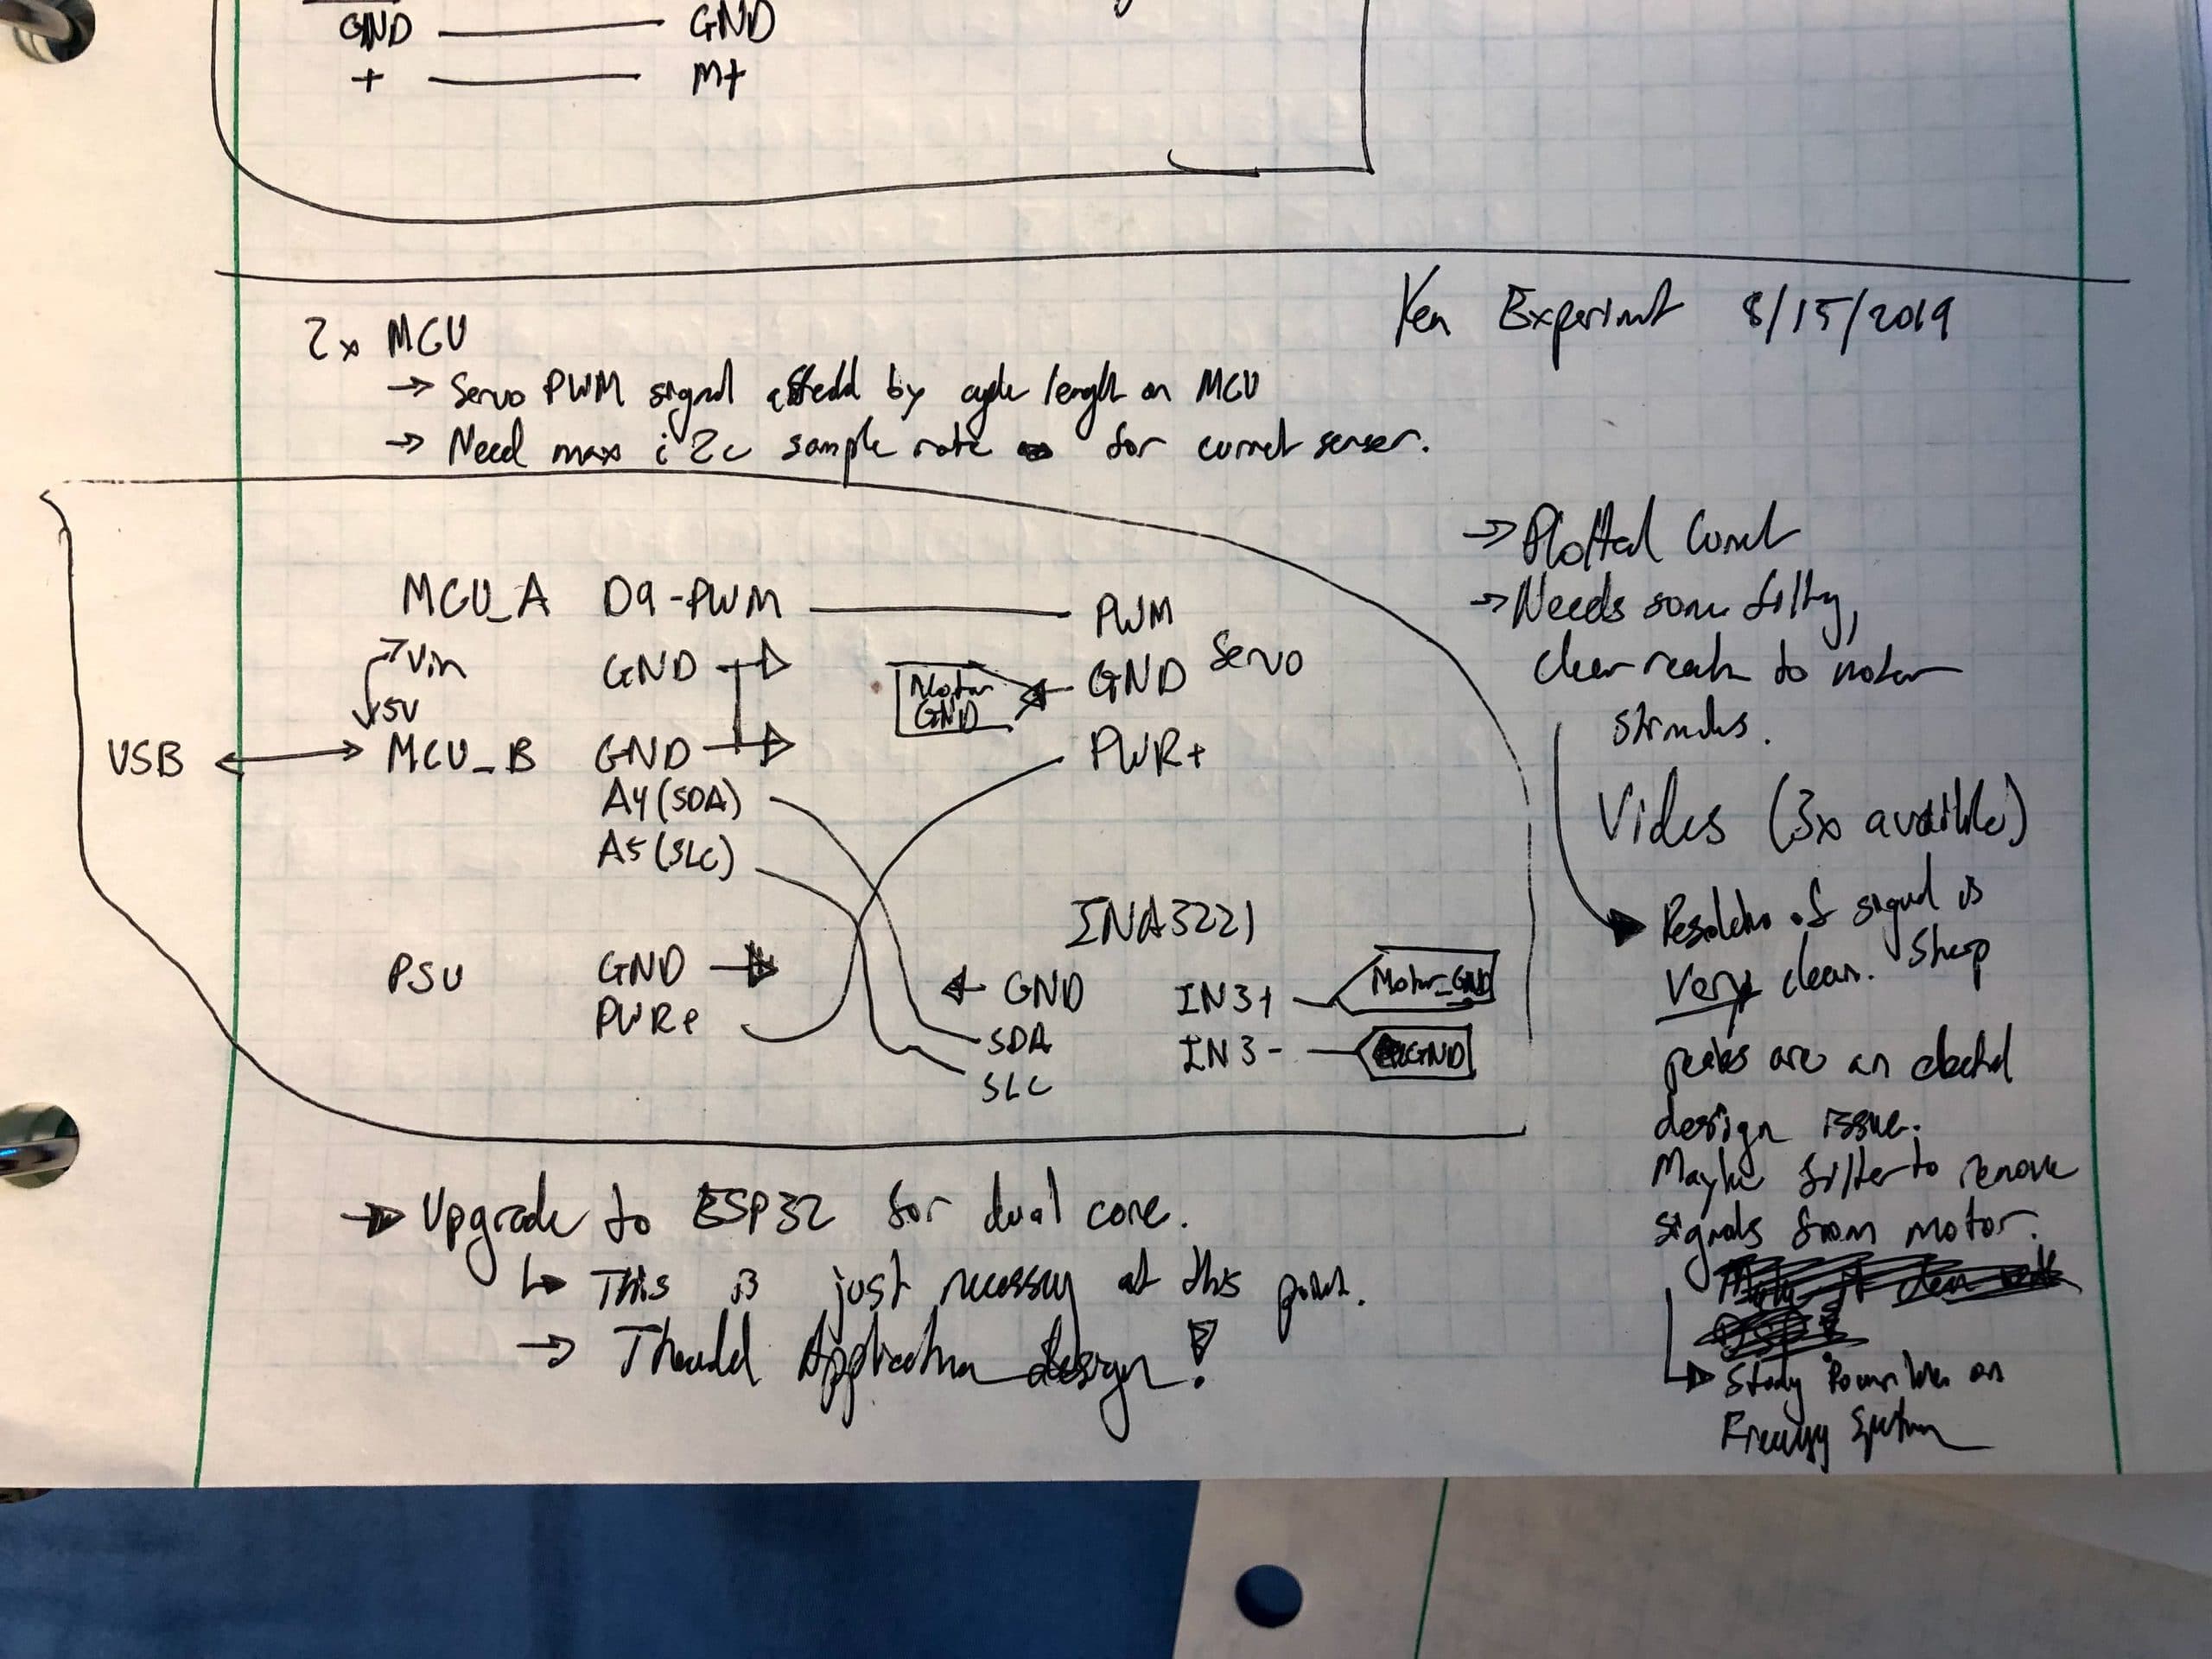 GND GND
+ M+
Ken Experimt 8/15/2019
2x MCU
→ Servo PWM signal by cycle length on MCU
→ Need max i2c sample rate for current senser.
MCU_A D9-PWM PWM
Vin GND Motor GND GND Servo
5V
USB MCU_B GND PWR+
A4 (SDA)
A5 (SLC)
INA3221
PSU GND GND IN3+ Motor_GND
PWR+ SDA IN3- GND
SLC
→ Upgrade to ESP32 for dual core.
↳ This is just necessary at this point.
→ Application design!
→ Plotted
→ Needs some
clear to motor
Videos (3x
of signal is
very clean. Sharp
peaks are an
design issue.
Maybe filter to remove
signals from motor.
Study on